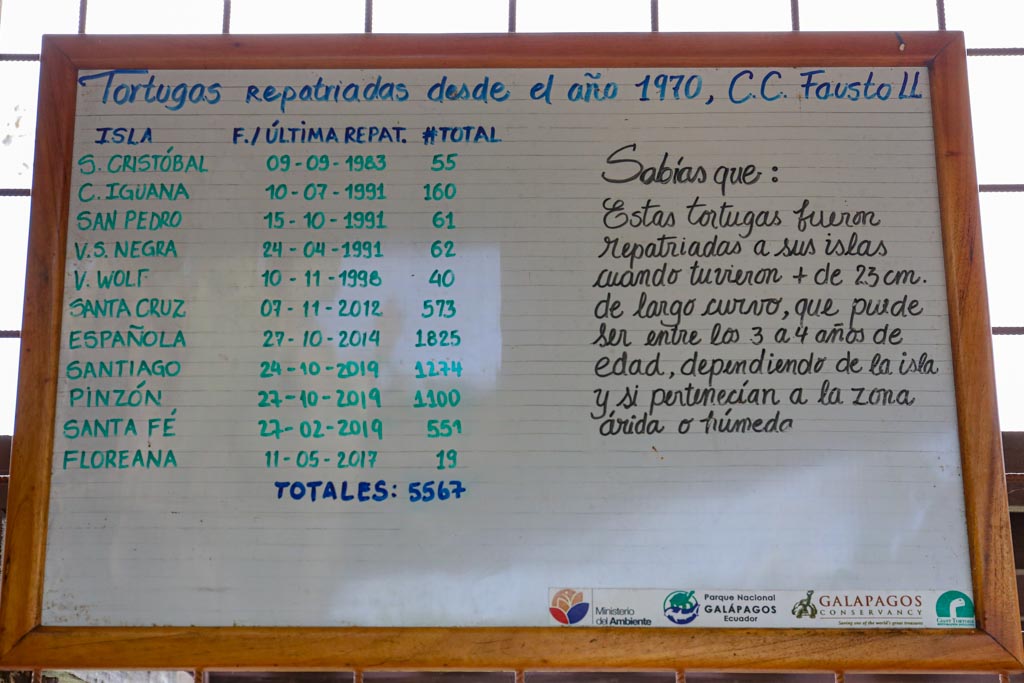 Tortugas repatriadas desde el año 1970, C.C. Fausto LL
ISLA F./ÚLTIMA REPAT. #TOTAL
S. CRISTÓBAL 09-09-1983 55
C. IGUANA 10-07-1991 160
SAN PEDRO 15-10-1991 61
V.S. NEGRA 24-04-1991 62
V. WOLF 10-11-1998 40
SANTA CRUZ 07-11-2012 573
ESPAÑOLA 27-10-2014 1825
SANTIAGO 24-10-2019 1274
PINZÓN 27-10-2019 1100
SANTA FÉ 27-02-2019 551
FLOREANA 11-05-2017 19
TOTALES: 5567
Sabías que:
Estas tortugas fueron
repatriadas a sus islas
cuando tuvieron + de 23 cm.
de largo curvo, que puede
ser entre los 3 a 4 años de
edad, dependiendo de la isla
y si pertenecían a la zona
árida o húmeda
Ministerio
del Ambiente
Parque Nacional
GALÁPAGOS
Ecuador
GALAPAGOS
CONSERVANCY
Saving one of the world's great treasures
GIANT TORTOISE